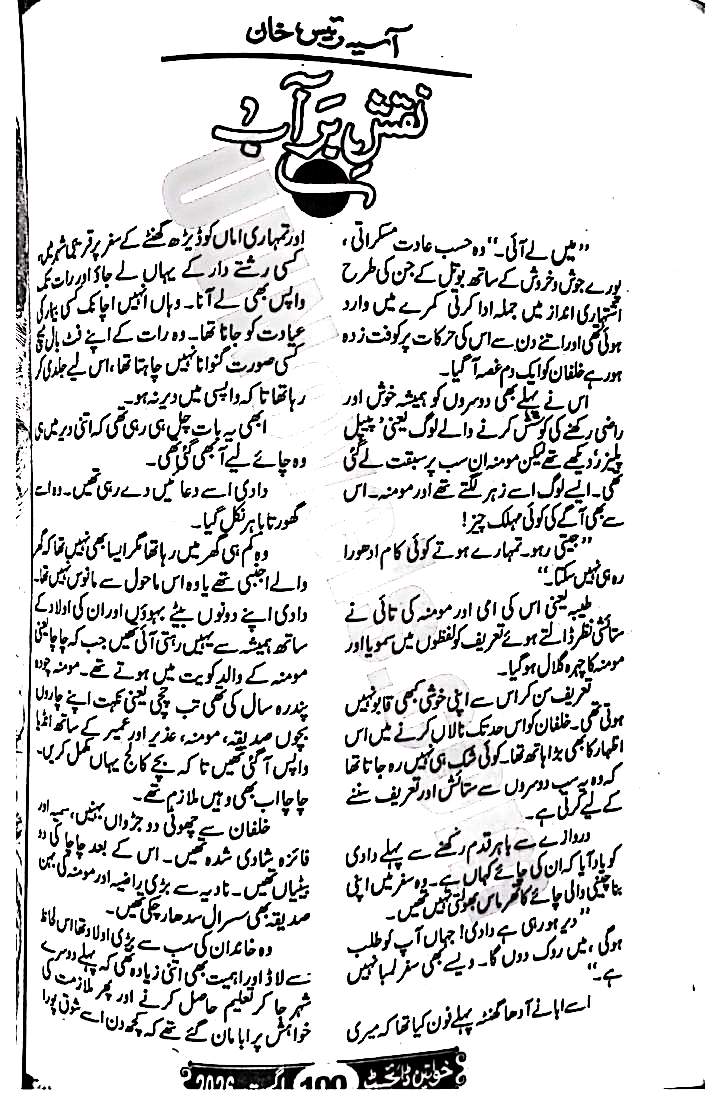 آسیہ رئیس خان
نقشِ بَر آب
”میں لے آئی۔“ وہ حسب عادت مسکراتی،
پورے جوش و خروش کے ساتھ بوتل کے جن کی طرح
اشتہاری انداز میں جملہ ادا کرتی کمرے میں وارد
ہوئی تھی اور اتنے دن سے اس کی حرکات پر کوفت زدہ
ہو رہے خلفان کو ایک دم غصہ آ گیا۔
اس نے پہلے بھی دوسروں کو ہمیشہ خوش اور
راضی رکھنے کی کوشش کرنے والے لوگ یعنی ’پیپل
پلیزر‘ دیکھے تھے لیکن مومنہ ان سب پر سبقت لے گئی
تھی۔ ایسے لوگ اسے زہر لگتے تھے اور مومنہ۔ اس
سے بھی آگے کی کوئی مہلک چیز!
”جیتی رہو۔ تمہارے ہوتے کوئی کام ادھورا
رہ ہی نہیں سکتا۔“
طیبہ یعنی اس کی امی اور مومنہ کی تائی نے
ستائشی نظر ڈالتے ہوئے تعریف کو لفظوں میں سمویا اور
مومنہ کا چہرہ گلال ہو گیا۔
تعریف سن کر اس سے اپنی خوشی کبھی قابو نہیں
ہوتی تھی۔ خلفان کو اس حد تک نالاں کرنے میں اس
اظہار کا بھی بڑا ہاتھ تھا۔ کوئی شک ہی نہیں رہ جاتا تھا
کہ وہ یہ سب دوسروں سے ستائش اور تعریف سننے
کے لیے کرتی ہے۔
دروازے سے باہر قدم رکھنے سے پہلے دادی
کو یاد آیا کہ ان کی چائے کہاں ہے۔ وہ سفر میں اپنی
بنا چینی والی چائے کا تھرماس بھولتی نہیں تھیں۔
”دیر ہو رہی ہے دادی! جہاں آپ کو طلب
ہوگی، میں روک دوں گا۔ ویسے بھی سفر لمبا نہیں
ہے۔“
اسے ابا نے آدھا گھنٹہ پہلے فون کیا تھا کہ میری
اور تمہاری اماں کو ڈیڑھ گھنٹے کے سفر پر قریبی شہر میں
کسی رشتے دار کے یہاں لے جاؤ اور رات تک
واپس بھی لے آنا۔ وہاں انہیں اچانک کسی بیمار کی
عیادت کو جانا تھا۔ وہ رات کے اپنے فٹ بال میچ
کسی صورت گنوانا نہیں چاہتا تھا، اس لیے جلدی کر
رہا تھا تاکہ واپسی میں دیر نہ ہو۔
ابھی یہ بات چل ہی رہی تھی کہ اتنی دیر میں ہی
وہ چائے لیے آ بھی گئی تھی۔
دادی اسے دعائیں دے رہی تھیں۔ وہ اسے
گھورتا باہر نکل گیا۔
وہ کم ہی گھر میں رہا تھا مگر ایسا بھی نہیں تھا کہ گھر
والے اجنبی تھے یا وہ اس ماحول سے مانوس نہیں تھا۔
دادی اپنے دونوں بیٹے بہوؤں اور ان کی اولاد کے
ساتھ ہمیشہ سے یہیں رہتی آئی تھیں جب کہ چاچا یعنی
مومنہ کے والد کویت میں ہوتے تھے۔ مومنہ چودہ
پندرہ سال کی تھی تب چچی یعنی نکہت اپنے چاروں
بچوں صدیقہ، مومنہ، عذیر اور عمیر کے ساتھ انڈیا
واپس آ گئی تھیں تاکہ بچے کالج یہاں مکمل کریں۔
چاچا اب بھی وہیں ملازم تھے۔
خلفان سے چھوٹی دو جڑواں بہنیں، سمیہ اور
فائزہ شادی شدہ تھیں۔ اس کے بعد چاچا کی دو
بیٹیاں تھیں۔ نادیہ سے بڑی راضیہ اور مومنہ کی بہن
صدیقہ بھی سسرال سدھار چکی تھیں۔
وہ خاندان کی سب سے بڑی اولاد تھا اس لحاظ
سے لاڈ اور اہمیت بھی اتنی زیادہ تھی کہ پہلے دوسرے
شہر جا کر تعلیم حاصل کرنے اور پھر ملازمت کی
خواہش پر ابا مان گئے تھے کہ کچھ دن اسے شوق پورا
خواتین ڈائجسٹ 100 اگست 2026